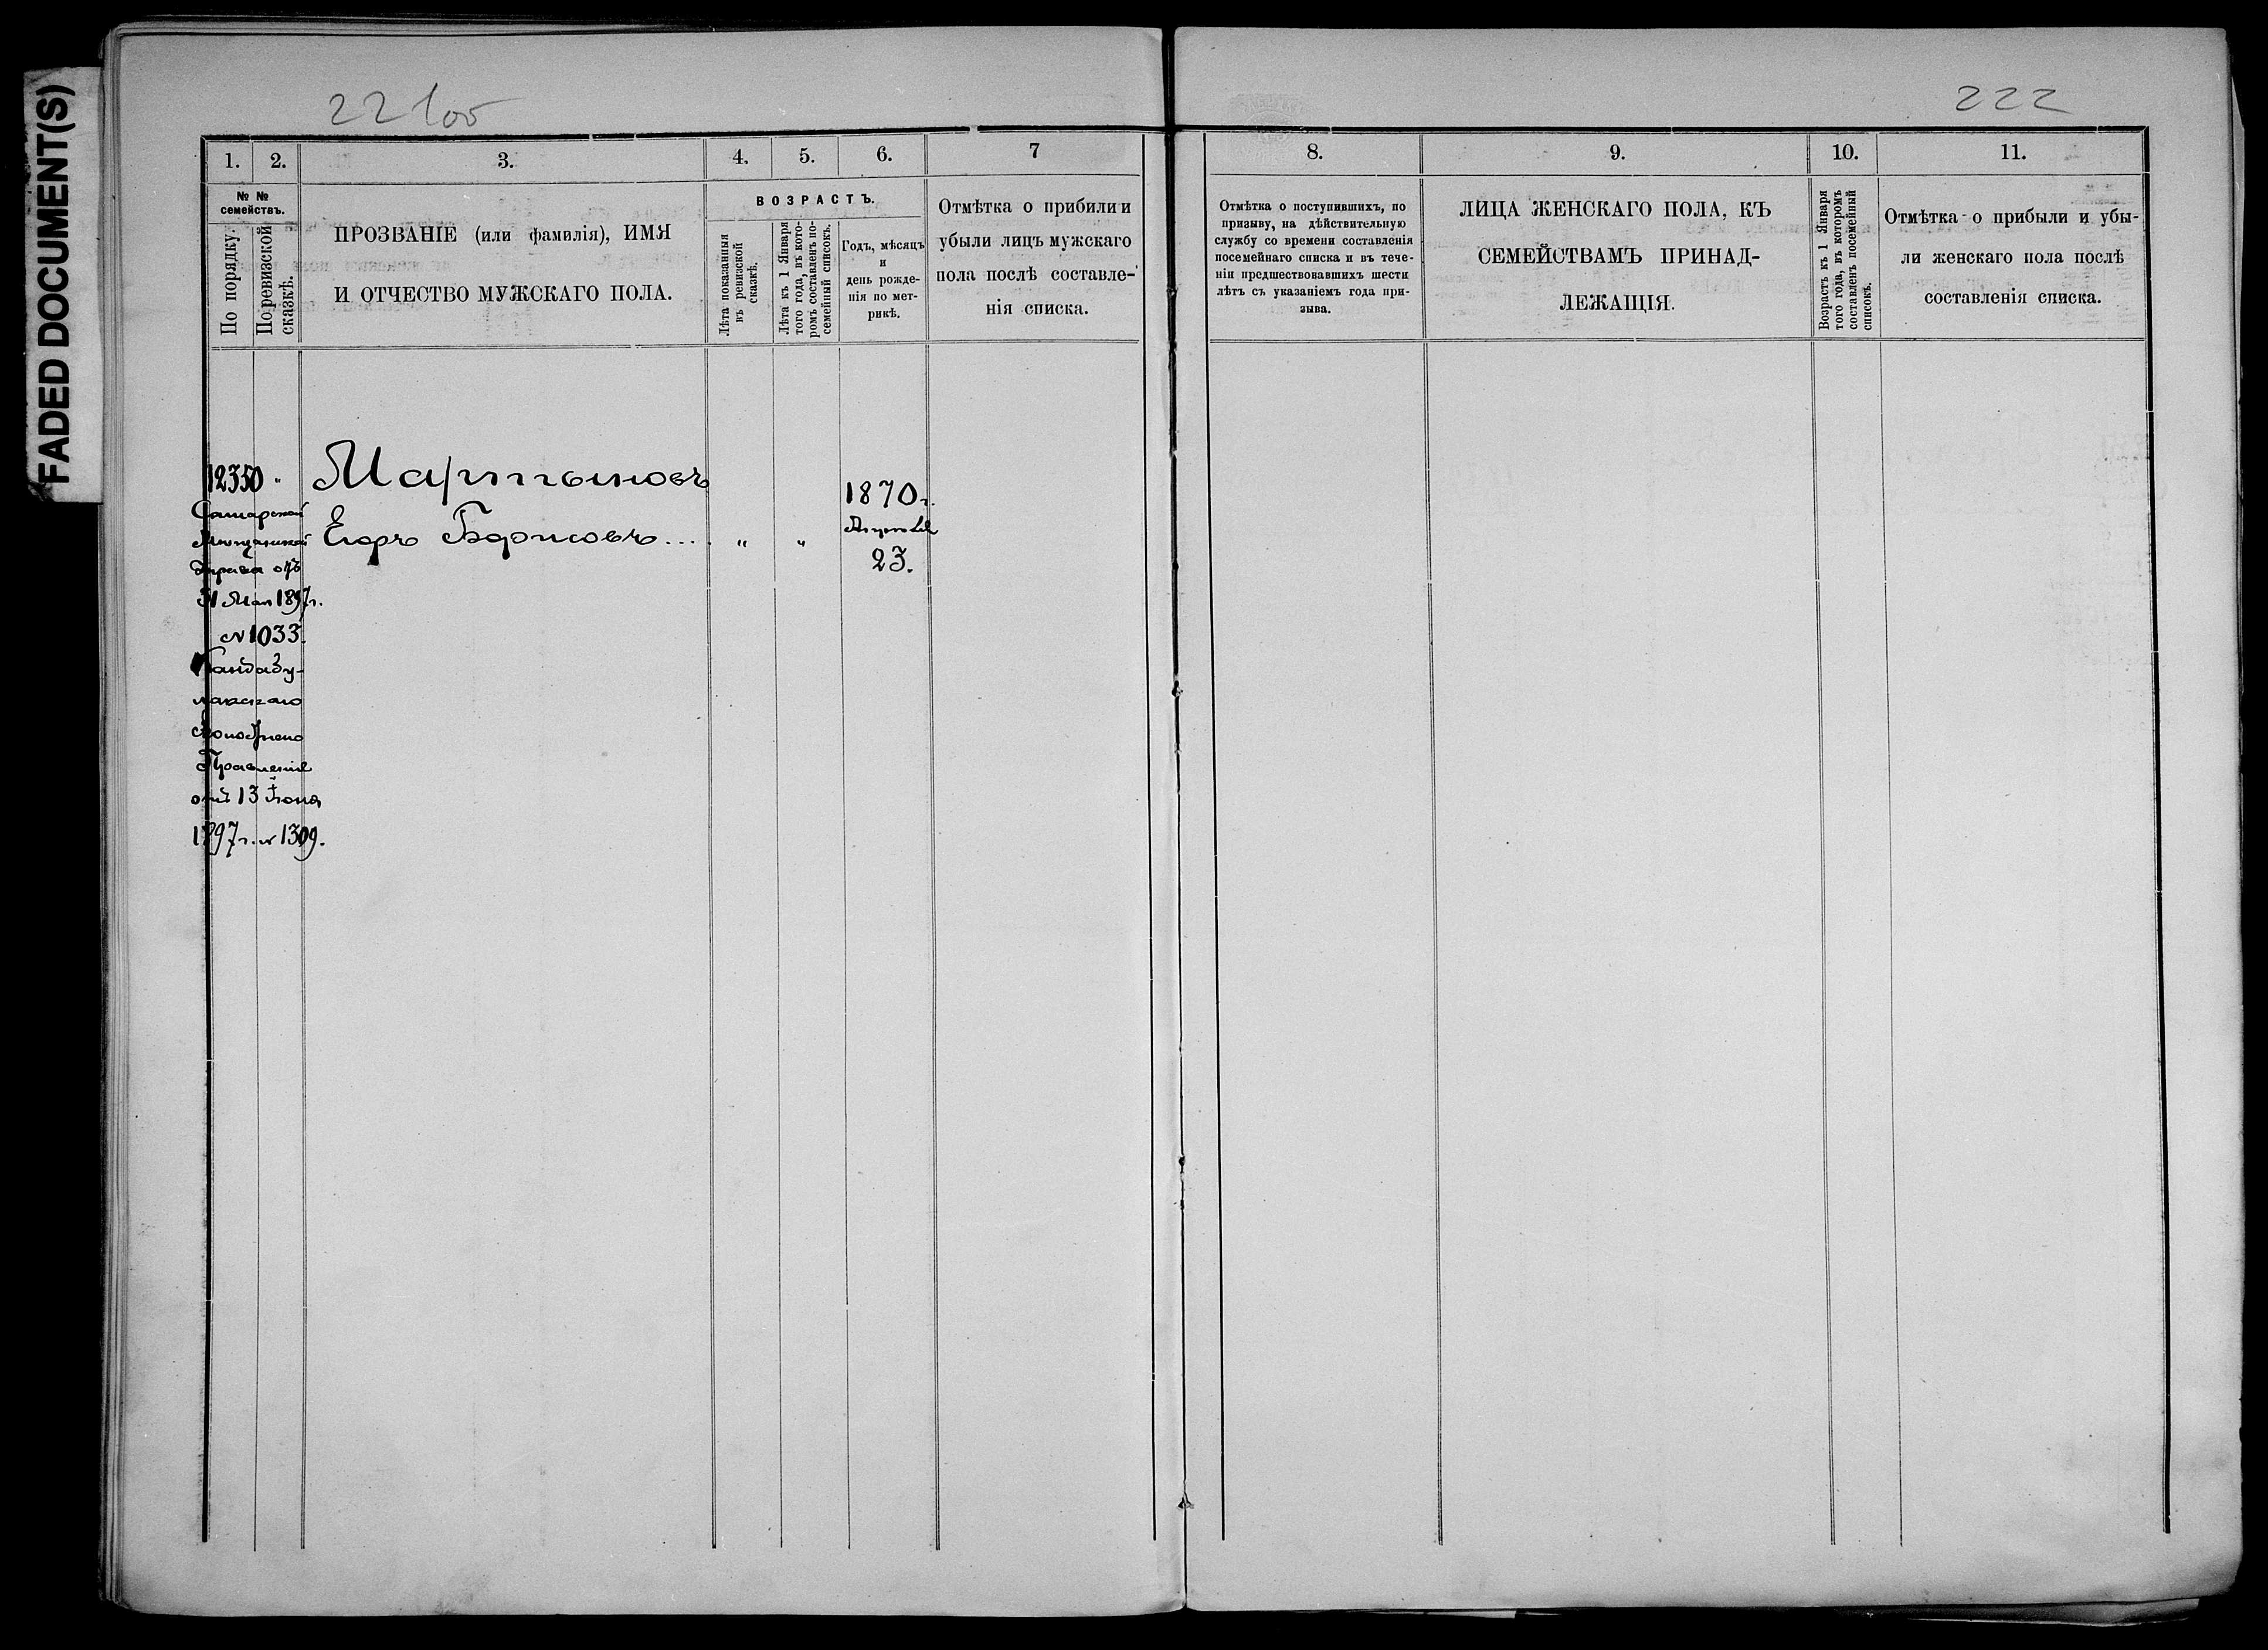 FADED DOCUMENT(S)
221об
222
1.
2.
3.
4.
5.
6.
7
№ №
семействъ.
По порядку.
По ревизской
сказкѣ.
ПРОЗВАНІЕ (или фамилія), ИМЯ
И ОТЧЕСТВО МУЖСКАГО ПОЛА.
ВОЗРАСТЪ.
Лѣта показанныя
въ ревизской
сказкѣ.
Лѣта къ 1 Января
того года, въ кото-
ромъ составленъ по-
семейный списокъ.
Годъ, мѣсяцъ
и
день рожде-
нія по мет-
рикѣ.
Отмѣтка о прибили и
убыли лицъ мужскаго
пола послѣ составле-
нія списка.
12350 "
Самарской
Мѣщанской
Управа отъ
31 Мая 1897г.
№ 1033.
Кандабу-
лакскаго
Волостного
Правленія
отъ 13 Іюня
1897г. № 1309.
Мартыновъ
Егоръ Борисовъ.... " "
1870г.
Августа
23.
8.
9.
10.
11.
Отмѣтка о поступившихъ, по
призыву, на дѣйствительную
службу со времени составленія
посемейнаго списка и въ тече-
ніи предшествовавшихъ шести
лѣтъ съ указаніемъ года при-
зыва.
ЛИЦА ЖЕНСКАГО ПОЛА, КЪ
СЕМЕЙСТВАМЪ ПРИНАД-
ЛЕЖАЩІЯ.
Возрастъ къ 1 Января
того года, въ которомъ
составленъ посемейный
списокъ.
Отмѣтка о прибыли и убы-
ли женскаго пола послѣ
составленія списка.